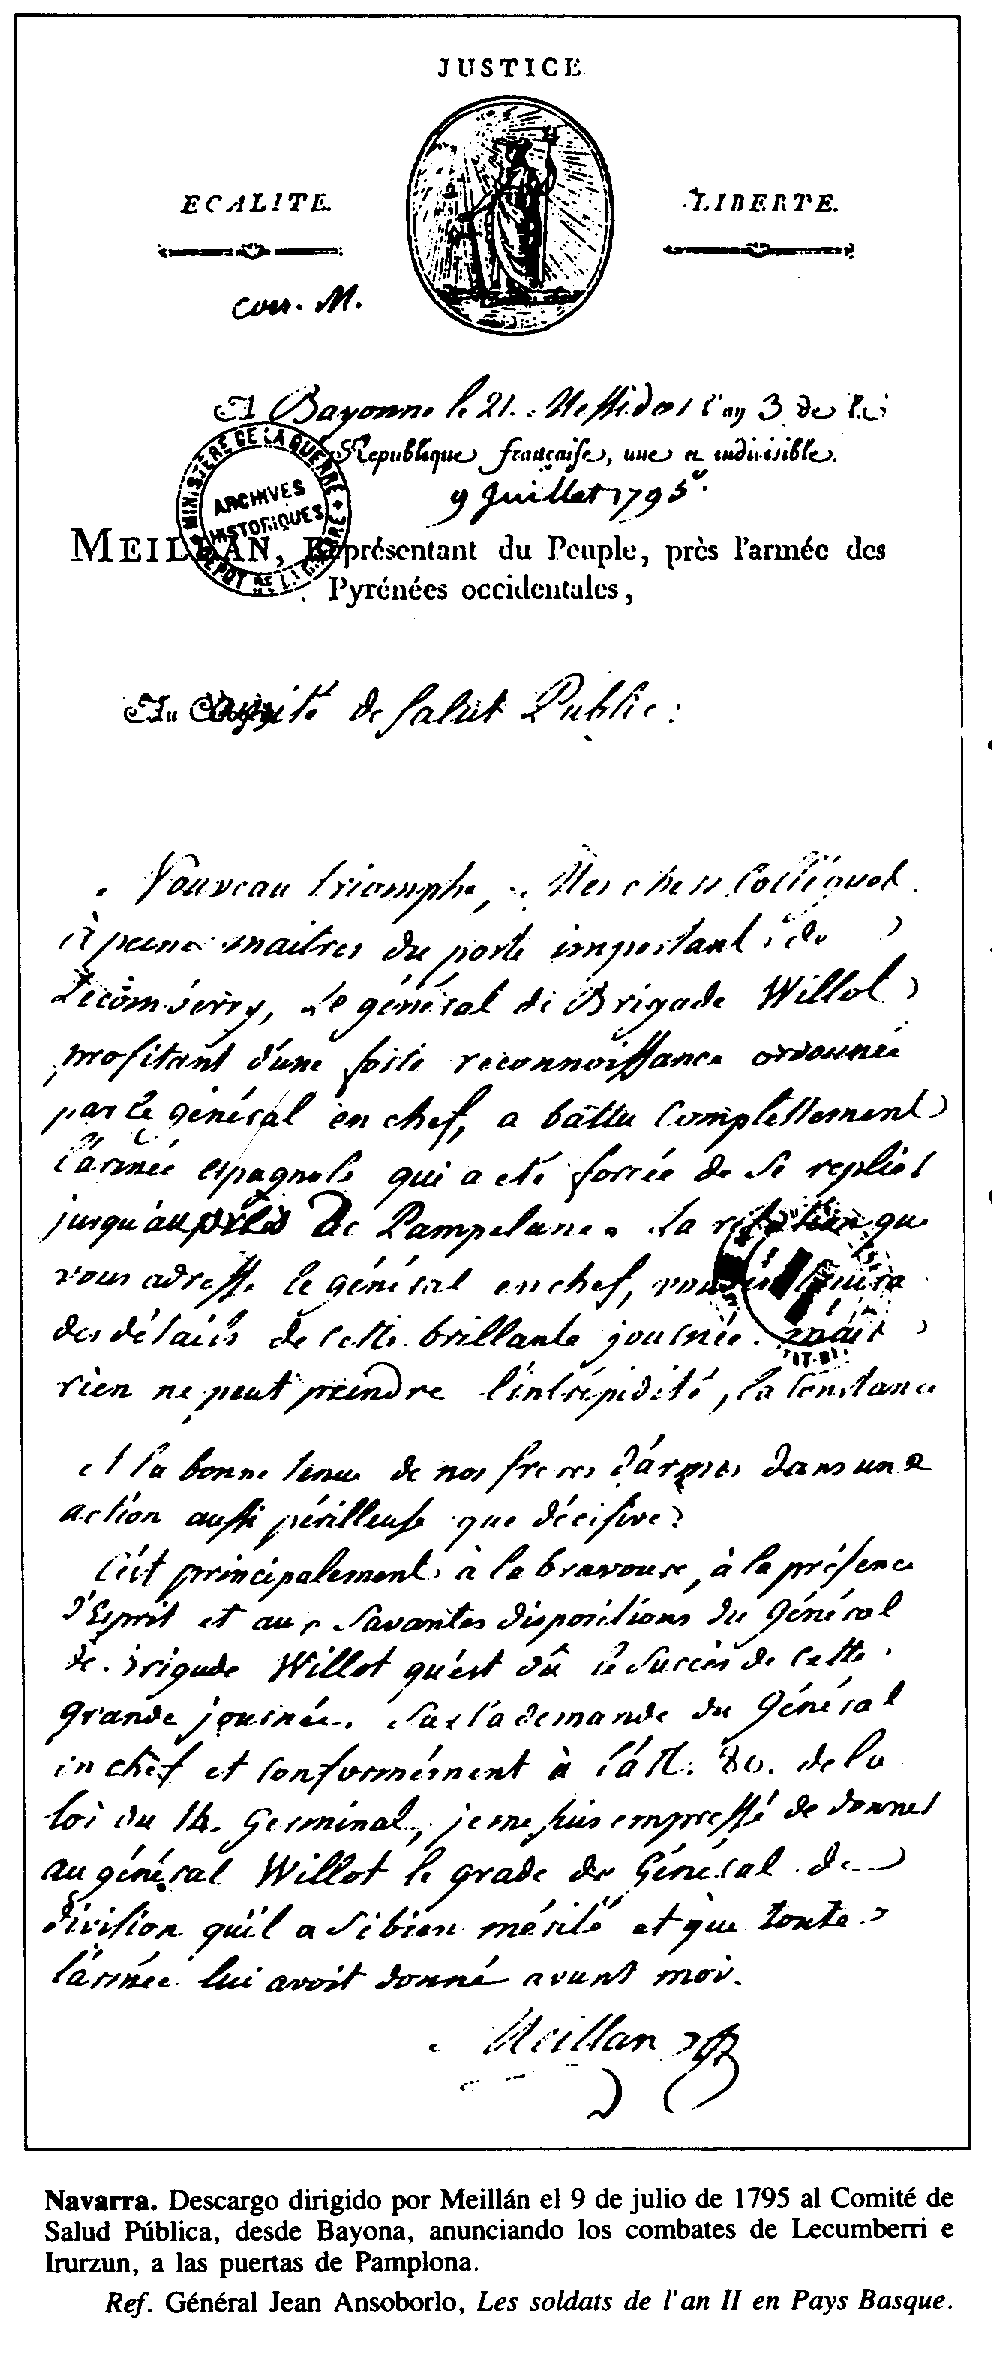 JUSTICE
EGALITE.
LIBERTE.
Corr. M.
A Bayonne le 21. Messidor l'an 3 de la
République française, une et indivisible.
9 Juillet 1795.
MINISTÈRE DE LA GUERRE
ARCHIVES
HISTORIQUES
DÉPÔT DE LA GUERRE
MEILLAN, Représentant du Peuple, près l'armée des
Pyrénées occidentales,
Au Comité de Salut Public:
Nouveau triomphe, Mes chers Collègues
à peine maitres du poste important de
Lecomberry, Le général de Brigade Willot
profitant d'une forte reconnoissance ordonnée
par le général en chef, a battu complettement
l'armée espagnole qui a été forcée de se replier
jusqu'auprès de Pampelune. La relation que
vous adresse le général en chef, vous
des détails de cette brillante journée. mais
rien ne peut peindre l'intrépidité, la constance
et la bonne tenue de nos freres d'armes dans une
action aussi périlleuse que décisive.
C'est principalement à la bravoure, à la présence
d'Esprit et aux Savantes dispositions du Général
de Brigade Willot qu'est dû le Succès de cette
grande journée. Sur la demande du Général
en chef et conformément à l'art. 80. de la
loi du 14. Germinal, je me suis empressé de donner
au général Willot le grade de Général de
division qu'il a si bien mérité et que toute
l'armée lui avoit donné avant moi.
Meillan
Navarra. Descargo dirigido por Meillán el 9 de julio de 1795 al Comité de
Salud Pública, desde Bayona, anunciando los combates de Lecumberri e
Irurzun, a las puertas de Pamplona.
Ref. Général Jean Ansoborlo, Les soldats de l'an II en Pays Basque.